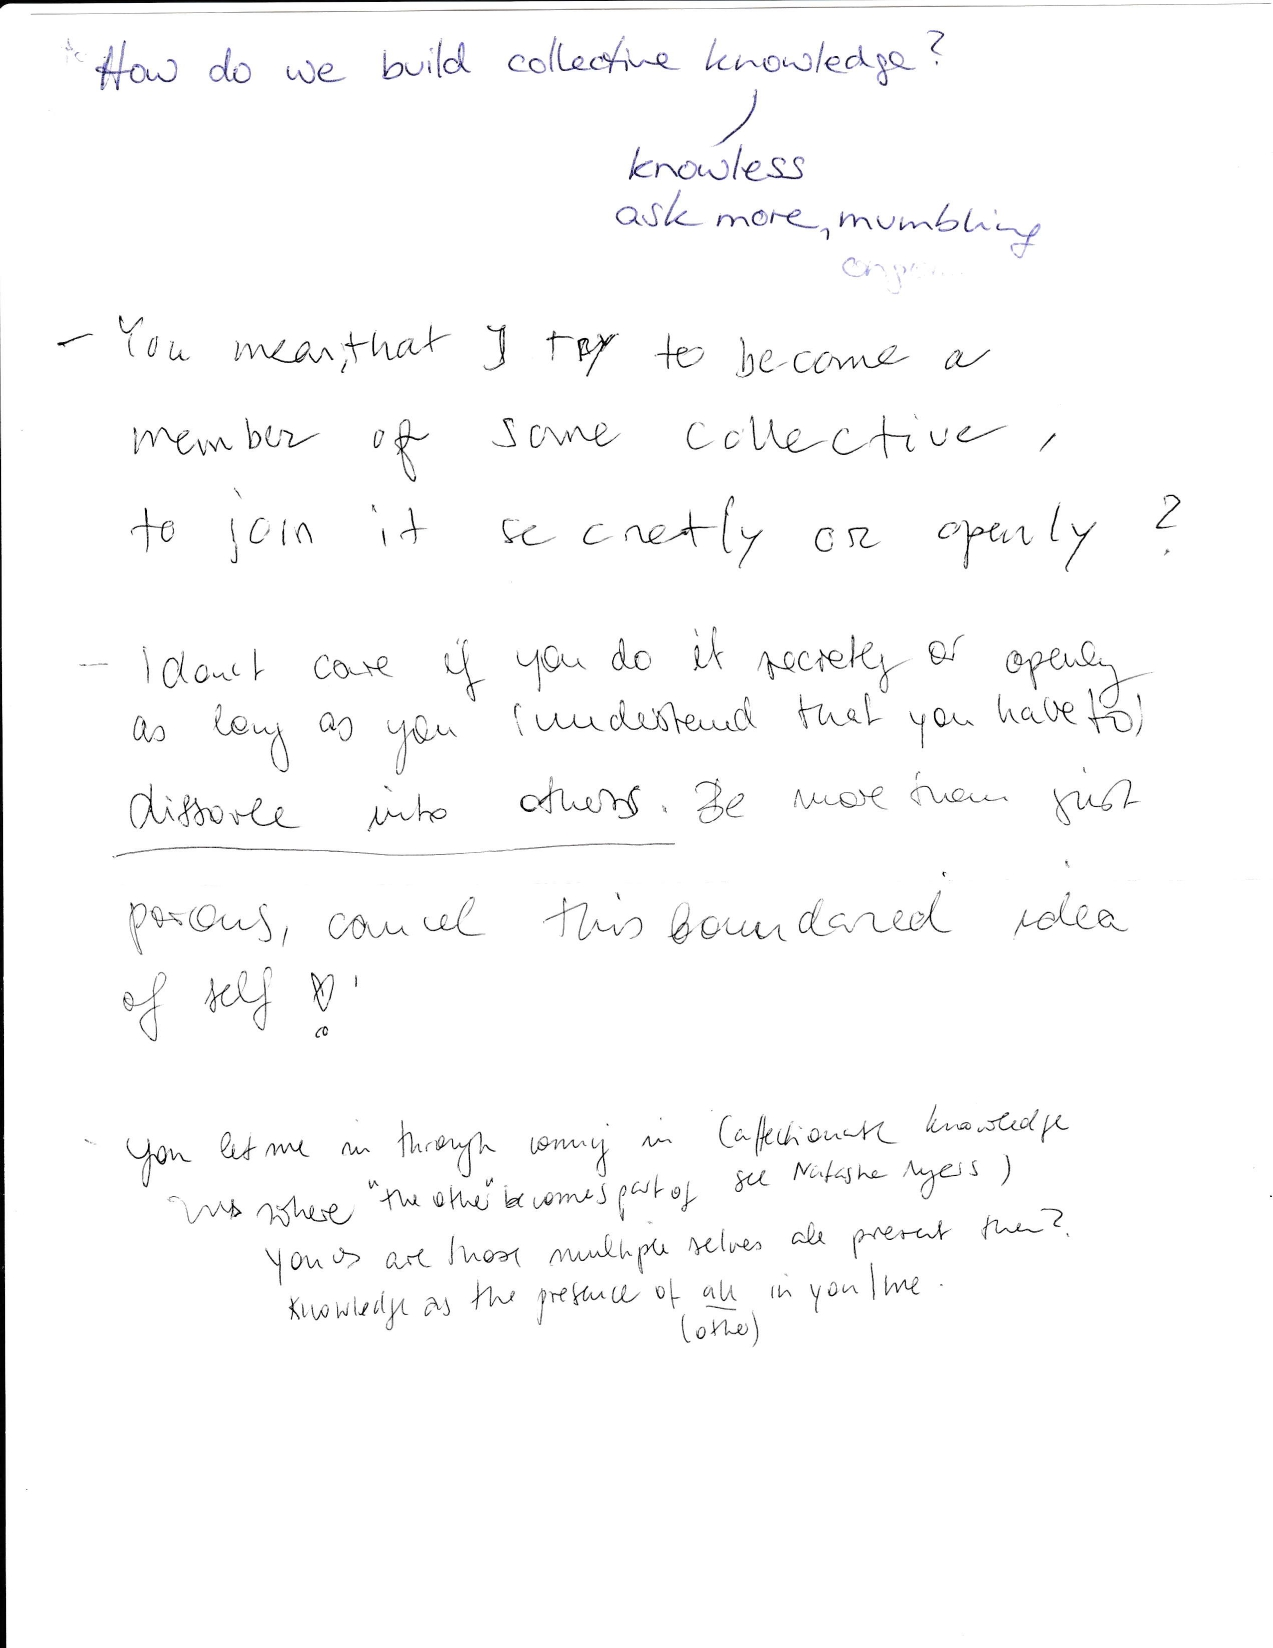 How do we build collective knowledge?
knowless
ask more, mumbling
- You mean, that I try to become a
member of some collective,
to join it secretly or openly?
- I don't care if you do it secretly or openly
as long as you (understand that you have to)
dissolve into others. Be more than just
porous, cancel this boundaried idea
of self!
- You let me in through coming in (affectionate knowledge
where "the other" becomes part of see Natasha Myers)
are those multiple selves all present then?
Knowledge as the presence of all in you/me.
(other)